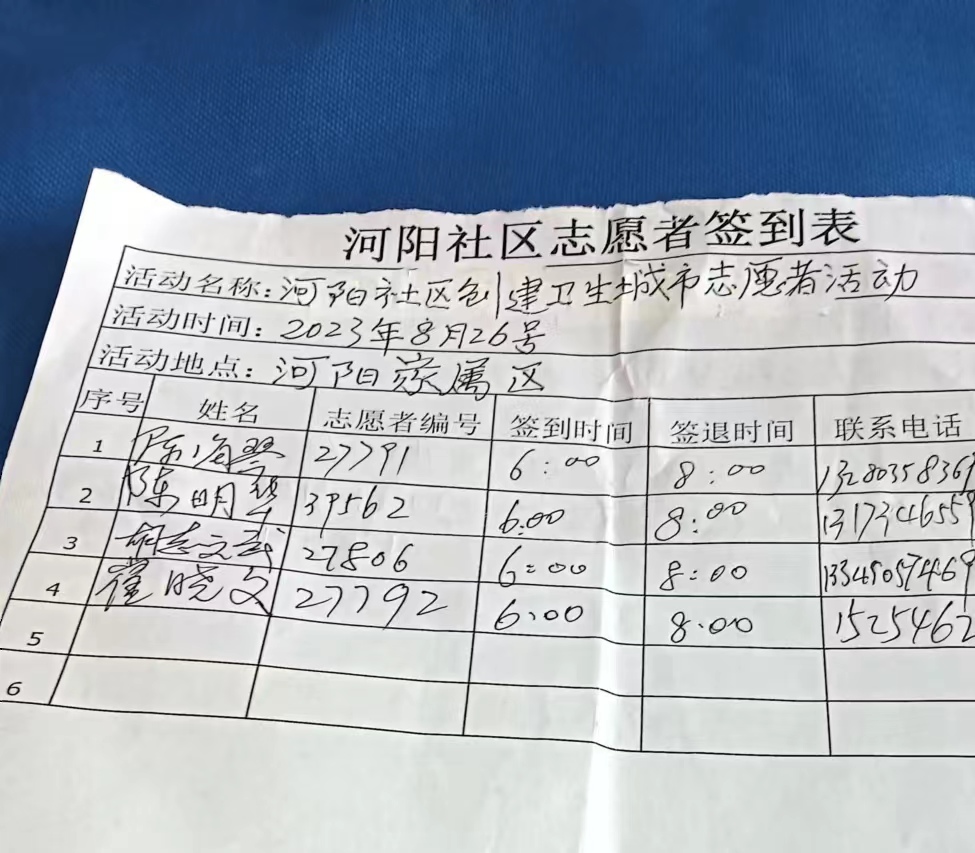 河阳社区志愿者签到表
活动名称：河阳社区创建卫生城市志愿者活动
活动时间：2023年8月26号
活动地点：河阳家属区
序号 姓名 志愿者编号 签到时间 签退时间 联系电话
1 陈海 27791 6:00 8:00 1328035836
2 陈明 39562 6:00 8:00 131734655
3 胡志文 27806 6:00 8:00 1334905746
4 崔晓文 27792 6:00 8:00 1525462
5
6